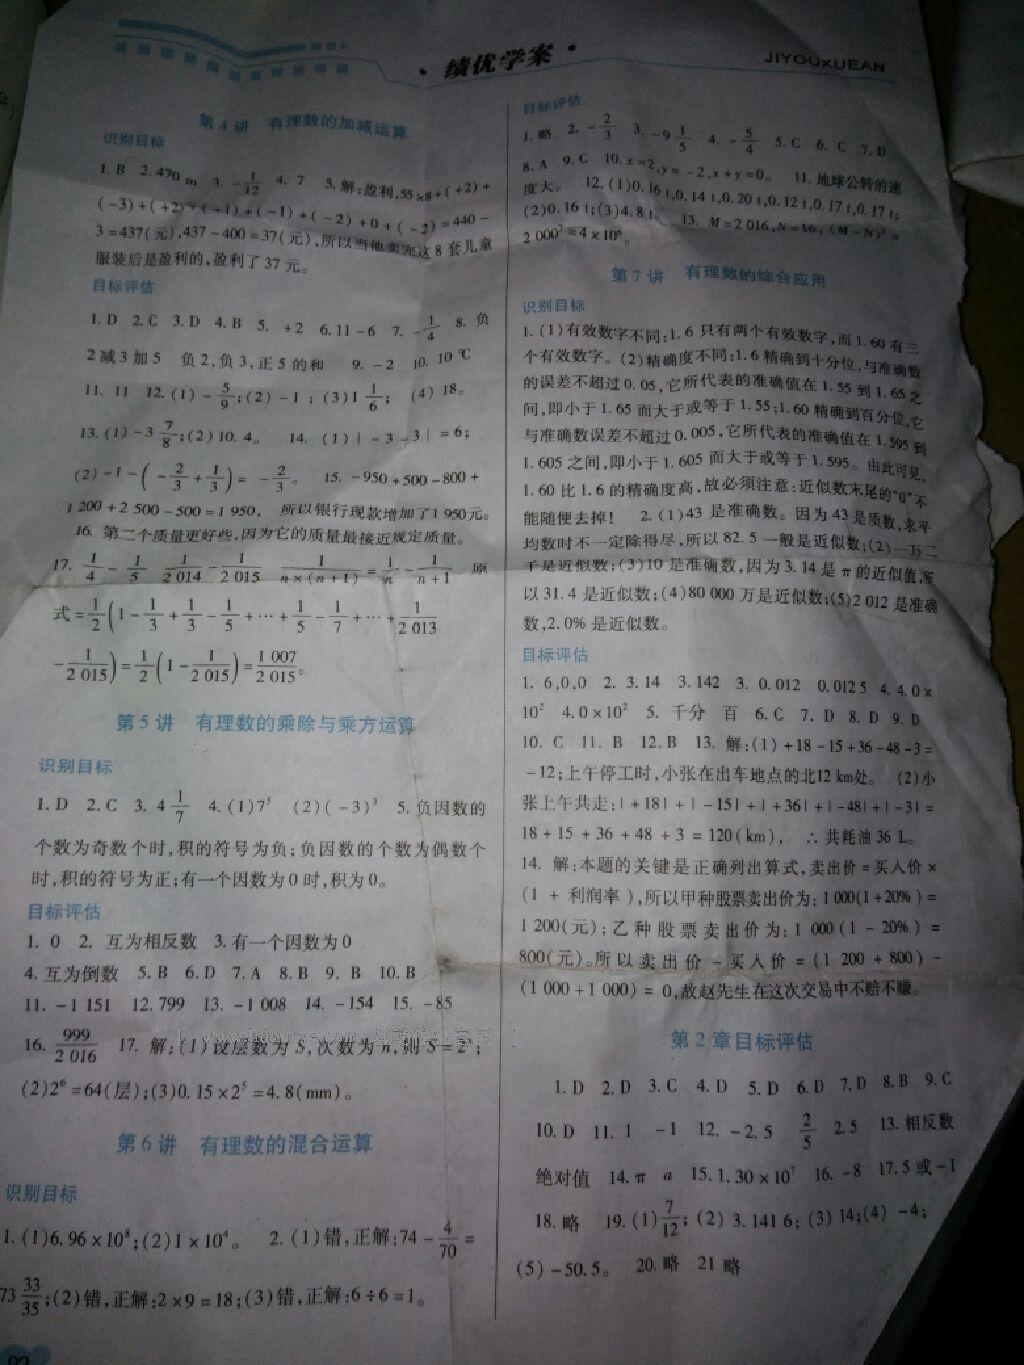 · 绩优学案 ·
JIYOUXUEAN
第 4 讲 有理数的加减运算
识别目标
1. B 2. 470 m 3. -1/12 4. 7 5. 解:盈利,55×8+(+2)+
(-3)+(+2)+(+1)+(-1)+(-2)+0+(-2)=440-
3=437(元),437-400=37(元),所以当他卖完这 8 套儿童
服装后是盈利的,盈利了 37 元。
目标评估
1. D 2. C 3. D 4. B 5. +2 6. 11-6 7. -1/4 8. 负
2 减 3 加 5 负 2,负 3,正 5 的和 9. -2 10. 10 ℃
11. 11 12. (1) -5/9;(2) -1;(3) 1 1/6; (4) 18。
13. (1) -3 7/8;(2) 10.4。 14. (1) |-3-3|=6;
(2) -1-(-2/3+1/3)= -2/3。 15. -950+500-800+
1 200+2 500-500=1 950, 所以银行现款增加了 1 950元。
16. 第二个质量更好些,因为它的质量最接近规定质量。
17. 1/4-1/5 1/2 014-1/2 015 1/n×(n+1)=1/n-1/n+1 原
式=1/2(1-1/3+1/3-1/5+…+1/5-1/7+…+1/2 013
-1/2 015)=1/2(1-1/2 015)=1 007/2 015。
第 5 讲 有理数的乘除与乘方运算
识别目标
1. D 2. C 3. 4 1/7 4. (1)7⁵ (2)(-3)³ 5. 负因数的
个数为奇数个时,积的符号为负;负因数的个数为偶数个
时,积的符号为正;有一个因数为 0 时,积为 0。
目标评估
1. 0 2. 互为相反数 3. 有一个因数为 0
4. 互为倒数 5. B 6. D 7. A 8. B 9. B 10. B
11. -1 151 12. 799 13. -1 008 14. -154 15. -85
16. 999/2 016 17. 解:(1)设层数为 S,次数为 n,则 S=2ⁿ;
(2)2⁶=64(层);(3)0.15×2⁵=4.8(mm)。
第 6 讲 有理数的混合运算
识别目标
1. (1)6.96×10⁸;(2)1×10⁴。 2. (1)错,正解:74-4/70=
73 33/35;(2)错,正解:2×9=18;(3)错,正解:6÷6=1。
目标评估
1. 略 2. -2/3 3. -9 1/5 4. -5/4 5. C 6. C 7. D
8. A 9. C 10. x=2,y=-2,x+y=0。 11. 地球公转的速
度大。 12. (1)0.16 t,0.14 t,0.20 t,0.12 t,0.17 t,0.17 t;
(2)0.16 t;(3)4.8 t。 13. M=2 016,N=16,(M-N)²=
2 000²=4×10⁶。
第 7 讲 有理数的综合应用
识别目标
1. (1)有效数字不同:1.6 只有两个有效数字,而 1.60 有三
个有效数字。(2)精确度不同:1.6 精确到十分位,与准确数
的误差不超过 0.05,它所代表的准确值在 1.55 到 1.65 之
间,即小于 1.65 而大于或等于 1.55;1.60 精确到百分位,它
与准确数误差不超过 0.005,它所代表的准确值在 1.595 到
1.605 之间,即小于 1.605 而大于或等于 1.595。由此可见,
1.60 比 1.6 的精确度高,故必须注意:近似数末尾的“0”不
能随便去掉! 2. (1)43 是准确数。因为 43 是质数,求平
均数时不一定除得尽,所以 82.5 一般是近似数;(2)一万二
千是近似数;(3)10 是准确数,因为 3.14 是 π 的近似值,所
以 31.4 是近似数;(4)80 000 万是近似数;(5)2 012 是准确
数,2.0% 是近似数。
目标评估
1. 6,0,0 2. 3.14 3.142 3. 0.012 0.012 5 4. 4.0×
10² 4.0×10² 5. 千分 百 6. C 7. D 8. D 9. D
10. C 11. B 12. B 13. 解:(1)+18-15+36-48-3=
-12;上午停工时,小张在出车地点的北12 km处。 (2)小
张上午共走:|+18|+|-15|+|+36|+|-48|+|-3|=
18+15+36+48+3=120(km), ∴ 共耗油 36 L。
14. 解:本题的关键是正确列出算式,卖出价=买入价×
(1 + 利润率),所以甲种股票卖出价为:1 000(1+20%)=
1 200(元);乙种股票卖出价为:1 000(1-20%)=
800(元)。所以卖出价-买入价=(1 200+800)-
(1 000+1 000)=0,故赵先生在这次交易中不赔不赚。
第 2 章目标评估
1. D 2. D 3. C 4. D 5. D 6. D 7. D 8. B 9. C
10. D 11. 1 -1 12. -2.5 2/5 2.5 13. 相反数
绝对值 14. π a 15. 1.30×10⁷ 16. -8 17. 5 或 -1
18. 略 19. (1)7/12;(2)3.141 6;(3)14;(4)-4;
(5)-50.5。 20. 略 21 略